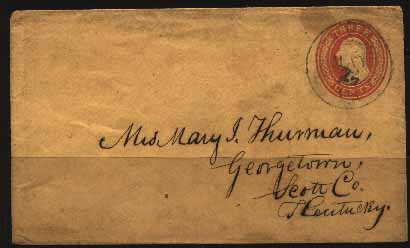 THREE
CENTS
Miss Mary J. Thurman,
Georgetown,
Scott Co.
Kentucky.